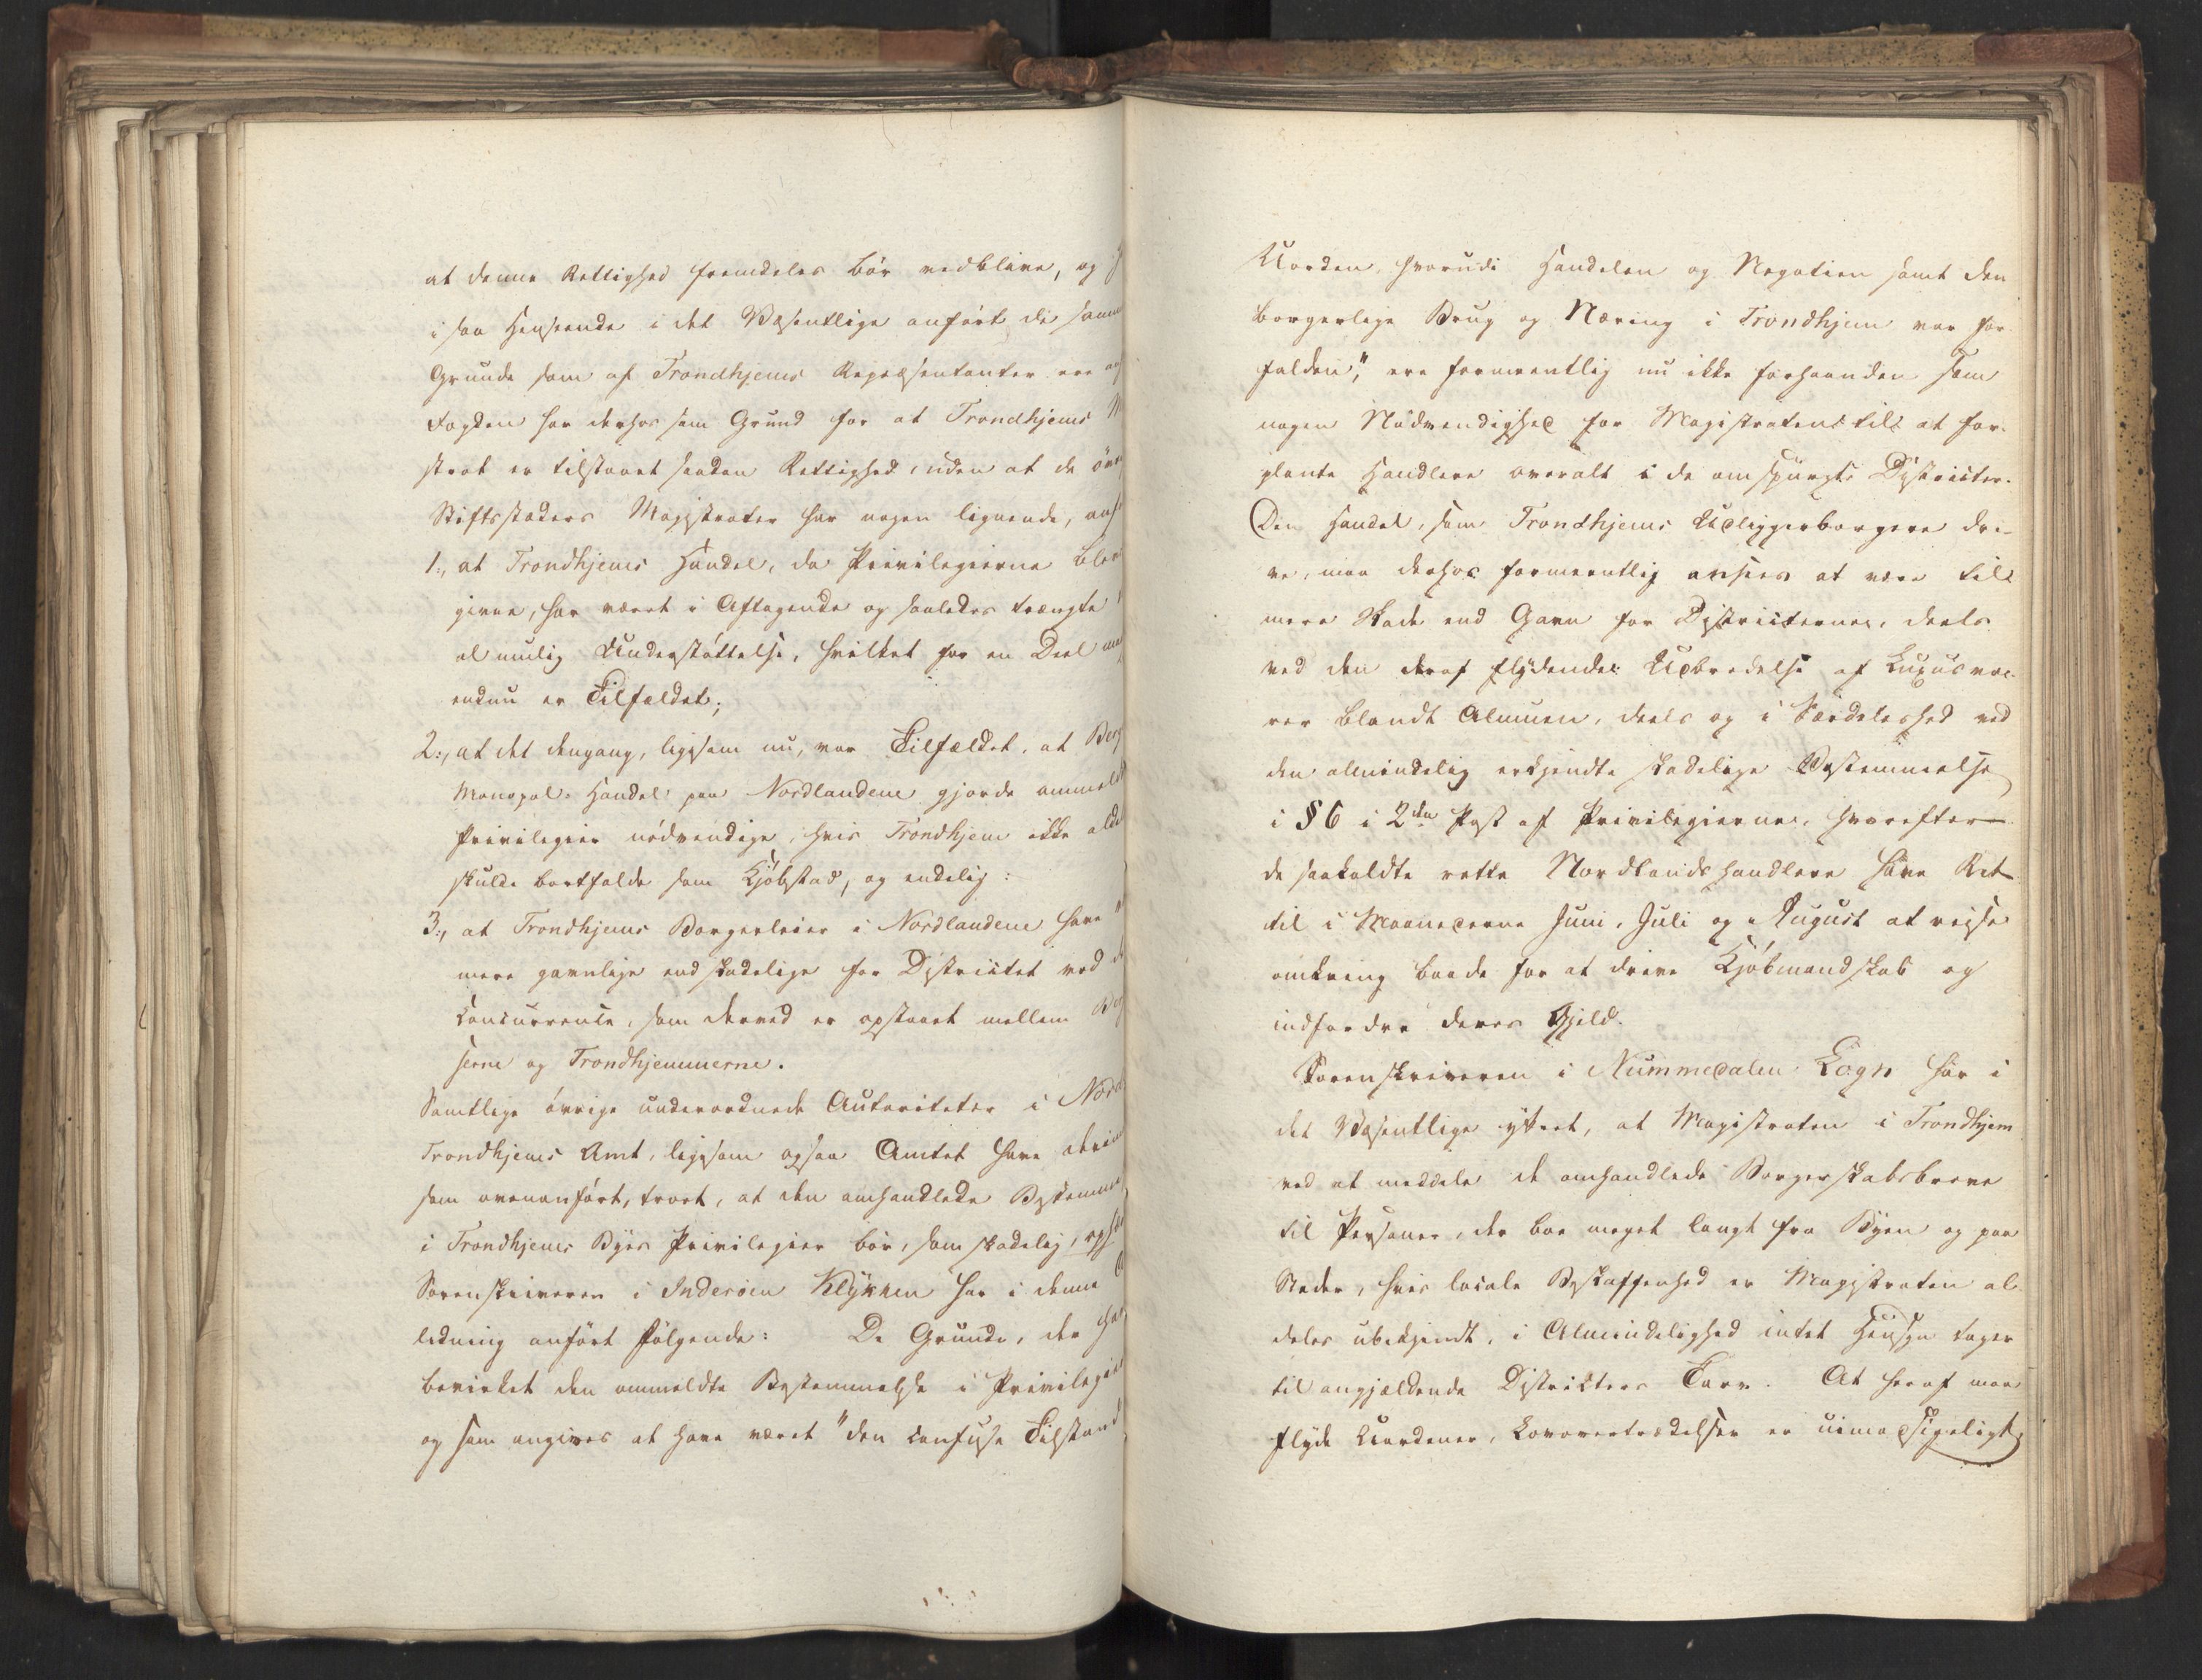 at denne Rettighed fremdeles bör vedblive, og
i saa Henseende i det Væsentlige anfört de samme
Grunde som af Trondhjems Repræsentanter ere
Fogden har derhos som Grund for at Trondhjems
strat er tilstaaet saadan Rettighed, uden at de övr
Stiftsstæders Magistrater har nogen lignende, anf
1., at Trondhjems Handel, da Privilegierne blev
givne, har været i Aftagende og saaledes trængte
al mulig Understöttelse, hvilket for en Deel
endnu er Tilfældet;
2., at det dengang, ligesom nu, var Tilfældet, at Berg
Monopol-Handel paa Nordlandene gjorde ommeld
Privilegier nödvendige, hvis Trondhjem ikke alde
skulde bortfalde som Kjöbstad, og endelig:
3., at Trondhjems Borgerleier i Nordlandene have
mere gavnlige end skadelige for Districtet ved d
Concurrence, som derved er opstaaet mellem Ber
serne og Trondhjemmerne.
Samtlige övrige underordnede Autoriteter i Nord
Trondhjems Amt, ligesom ogsaa Amtet have derim
som ovenanfört, troet, at den omhandlede Bestemme
i Trondhjems Byes Privilegier bör, som skadelig, oph
Sorenskriveren i Inderöen Klykken har i denne
ledning anfört Fölgende: De Grunde, der ha
bevirket den ommeldte Bestemmelse i Privilegie
og som angives at have været "den confuse Tilstand
Uorden, hvorudi Handelen og Negotien samt den
borgerlige Brug og Næring i Trondhjem var for
falden", ere formeentlig nu ikke forhaanden som
nogen Nödvendighed for Magistraten til at for-
plante Handlere overalt i de omspurgte Districter.
Den Handel, som Trondhjems Udliggerborgere dri-
ve, maa derhos formeentlig ansees at være til
mere Skade end Gavn for Districterne, deels
ved den deraf flydende Udbredelse af Luxusva-
rer blandt Almuen, deels og i Særdeleshed ved
den almindelig erkjendte skadelige Bestemmelse
i § 6 i 2den Post af Privilegierne, hvorefter
de saakaldte rette Nordlandshandlere have Ret
til i Maanederne Juni, Juli og August at reise
omkring baade for at drive Kjöbmandskab og
indfordre deres Gjeld.
Sorenskriveren i Nummedalen Logn har i
det Væsentlige yttret, at Magistraten i Trondhjem
ved at meddele de omhandlede Borgerskabsbreve
til Personer, der boe meget langt fra Byen og paa
Steder, hvis locale Beskaffenhed er Magistraten al-
deles ubekjendt, i Almindelighed intet Hensyn tager
til angjældende Districters Tarv. At heraf maa
flyde Uordener, Lovovertrædelser er uimodsigeligt,